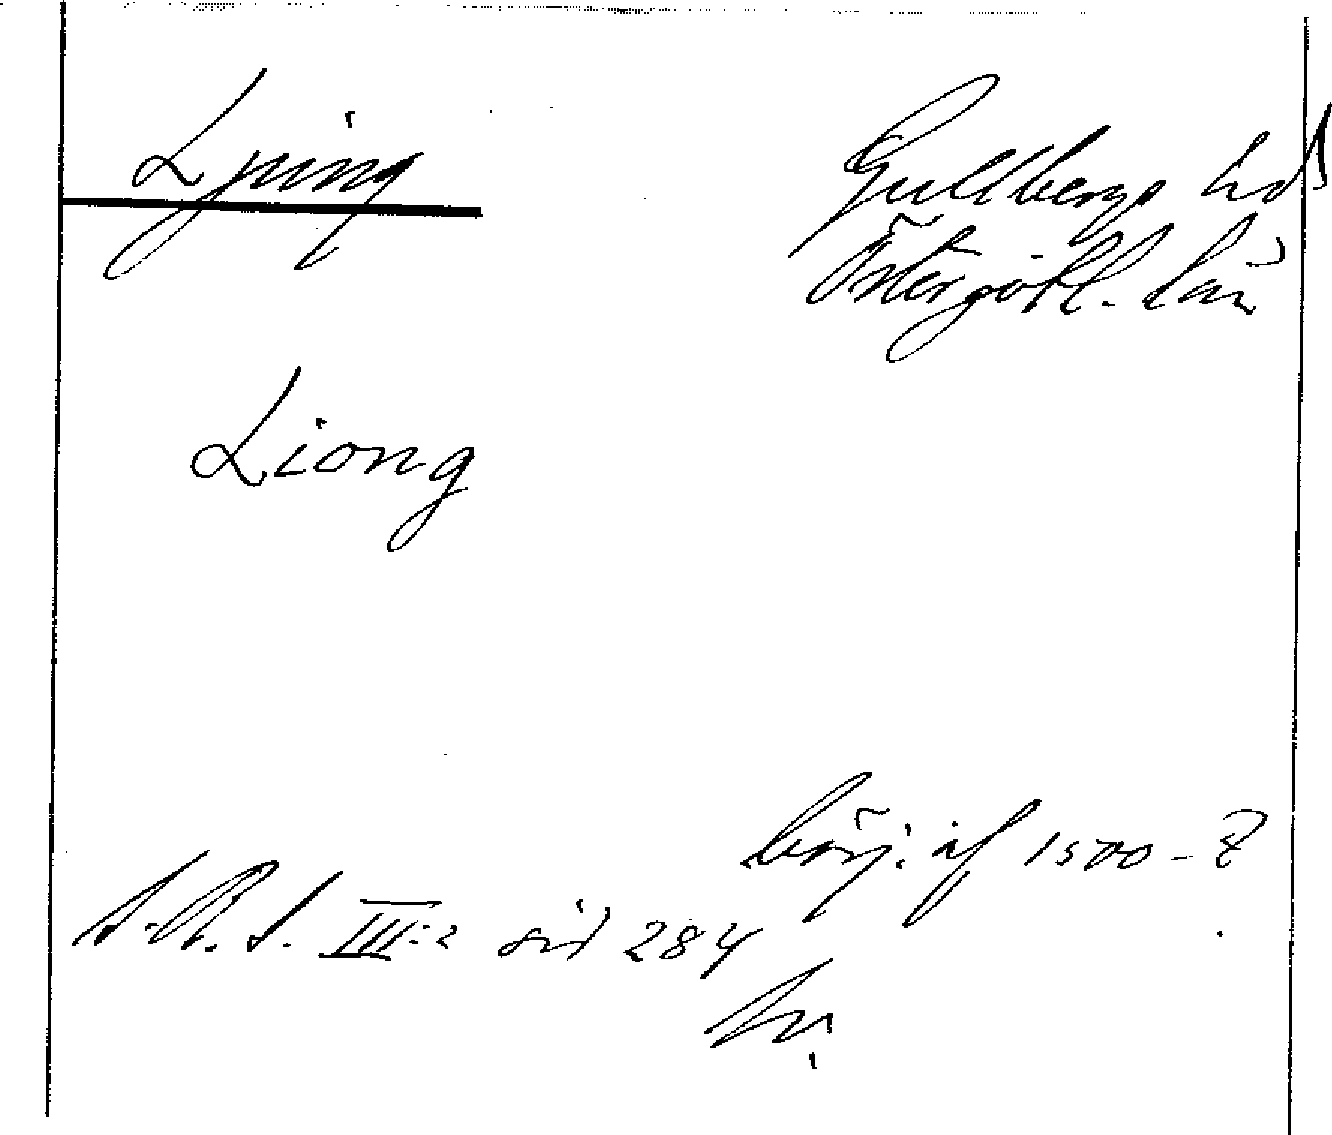 Ljung
Gullbergs hd
Östergötl. län
Liong
börj. af 1500-t
S.R.S. III:2 sid 284